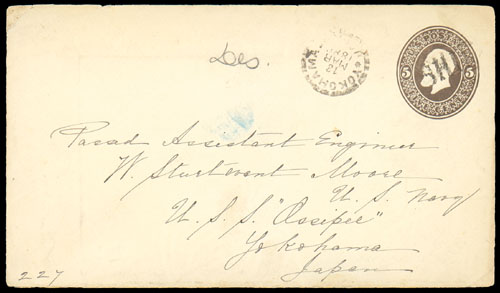 Des.
YOKOHAMA
12
MAR
5
5
Pasad Assistant Engineer
W. Sturtevent Moore
U. S. Navy
U. S. S. "Ossipee"
Yokohama
Japan
227